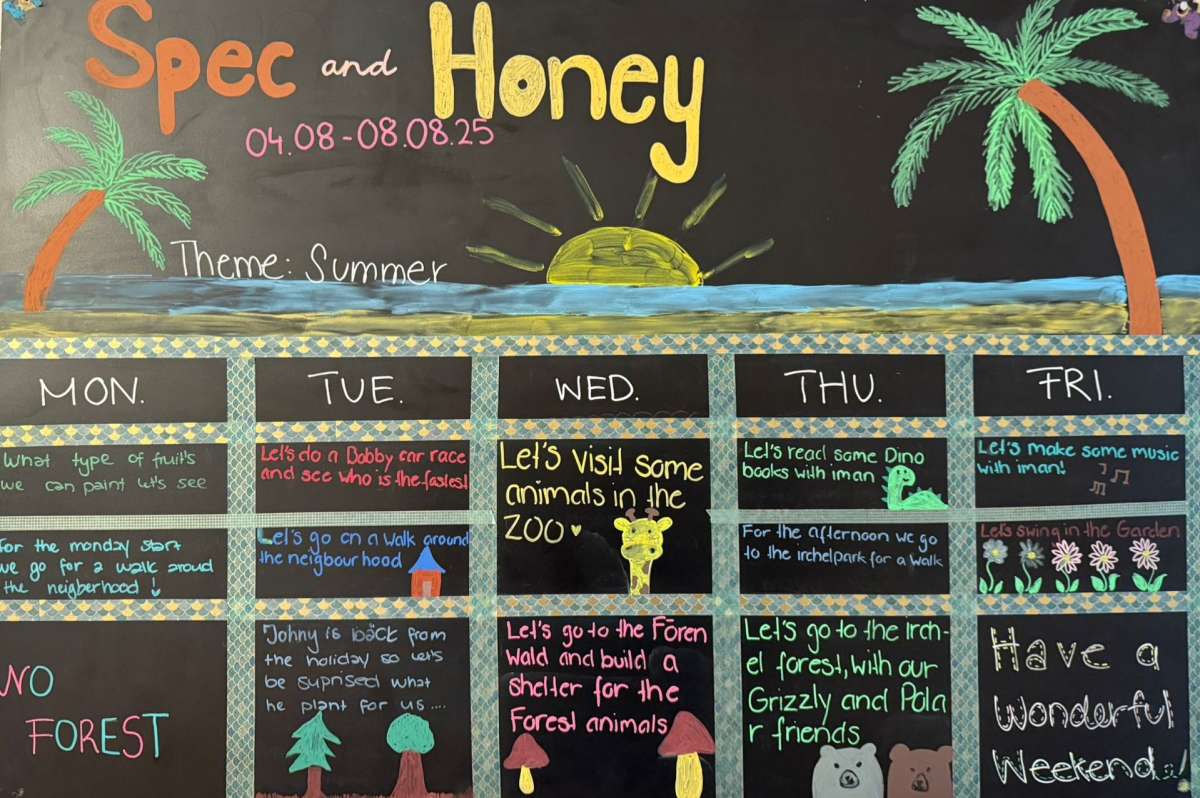 Spec and Honey
04.08-08.08.25
Theme: Summer
MON.
TUE.
WED.
THU.
FRI.
What type of fruit's
we can paint let's see
Let's do a Bobby car race
and see who is the fastest
Let's visit some
animals in the
ZOO
Let's read some Dino
books with iman
Let's make some music
with iman!
For the monday start
we go for a walk aroud
the neigberhood !
Let's go on a walk around
the neigbourhood
For the afternoon we go
to the irchelpark for a walk
Let's swing in the Garden
NO
FOREST
Johny is back from
the holiday so let's
be suprised what
he plant for us....
Let's go to the Fören
wald and build a
shelter for the
Forest animals
Let's go to the irch-
el forest, with our
Grizzly and Pola
r friends
Have a
Wonderful
Weekend..!